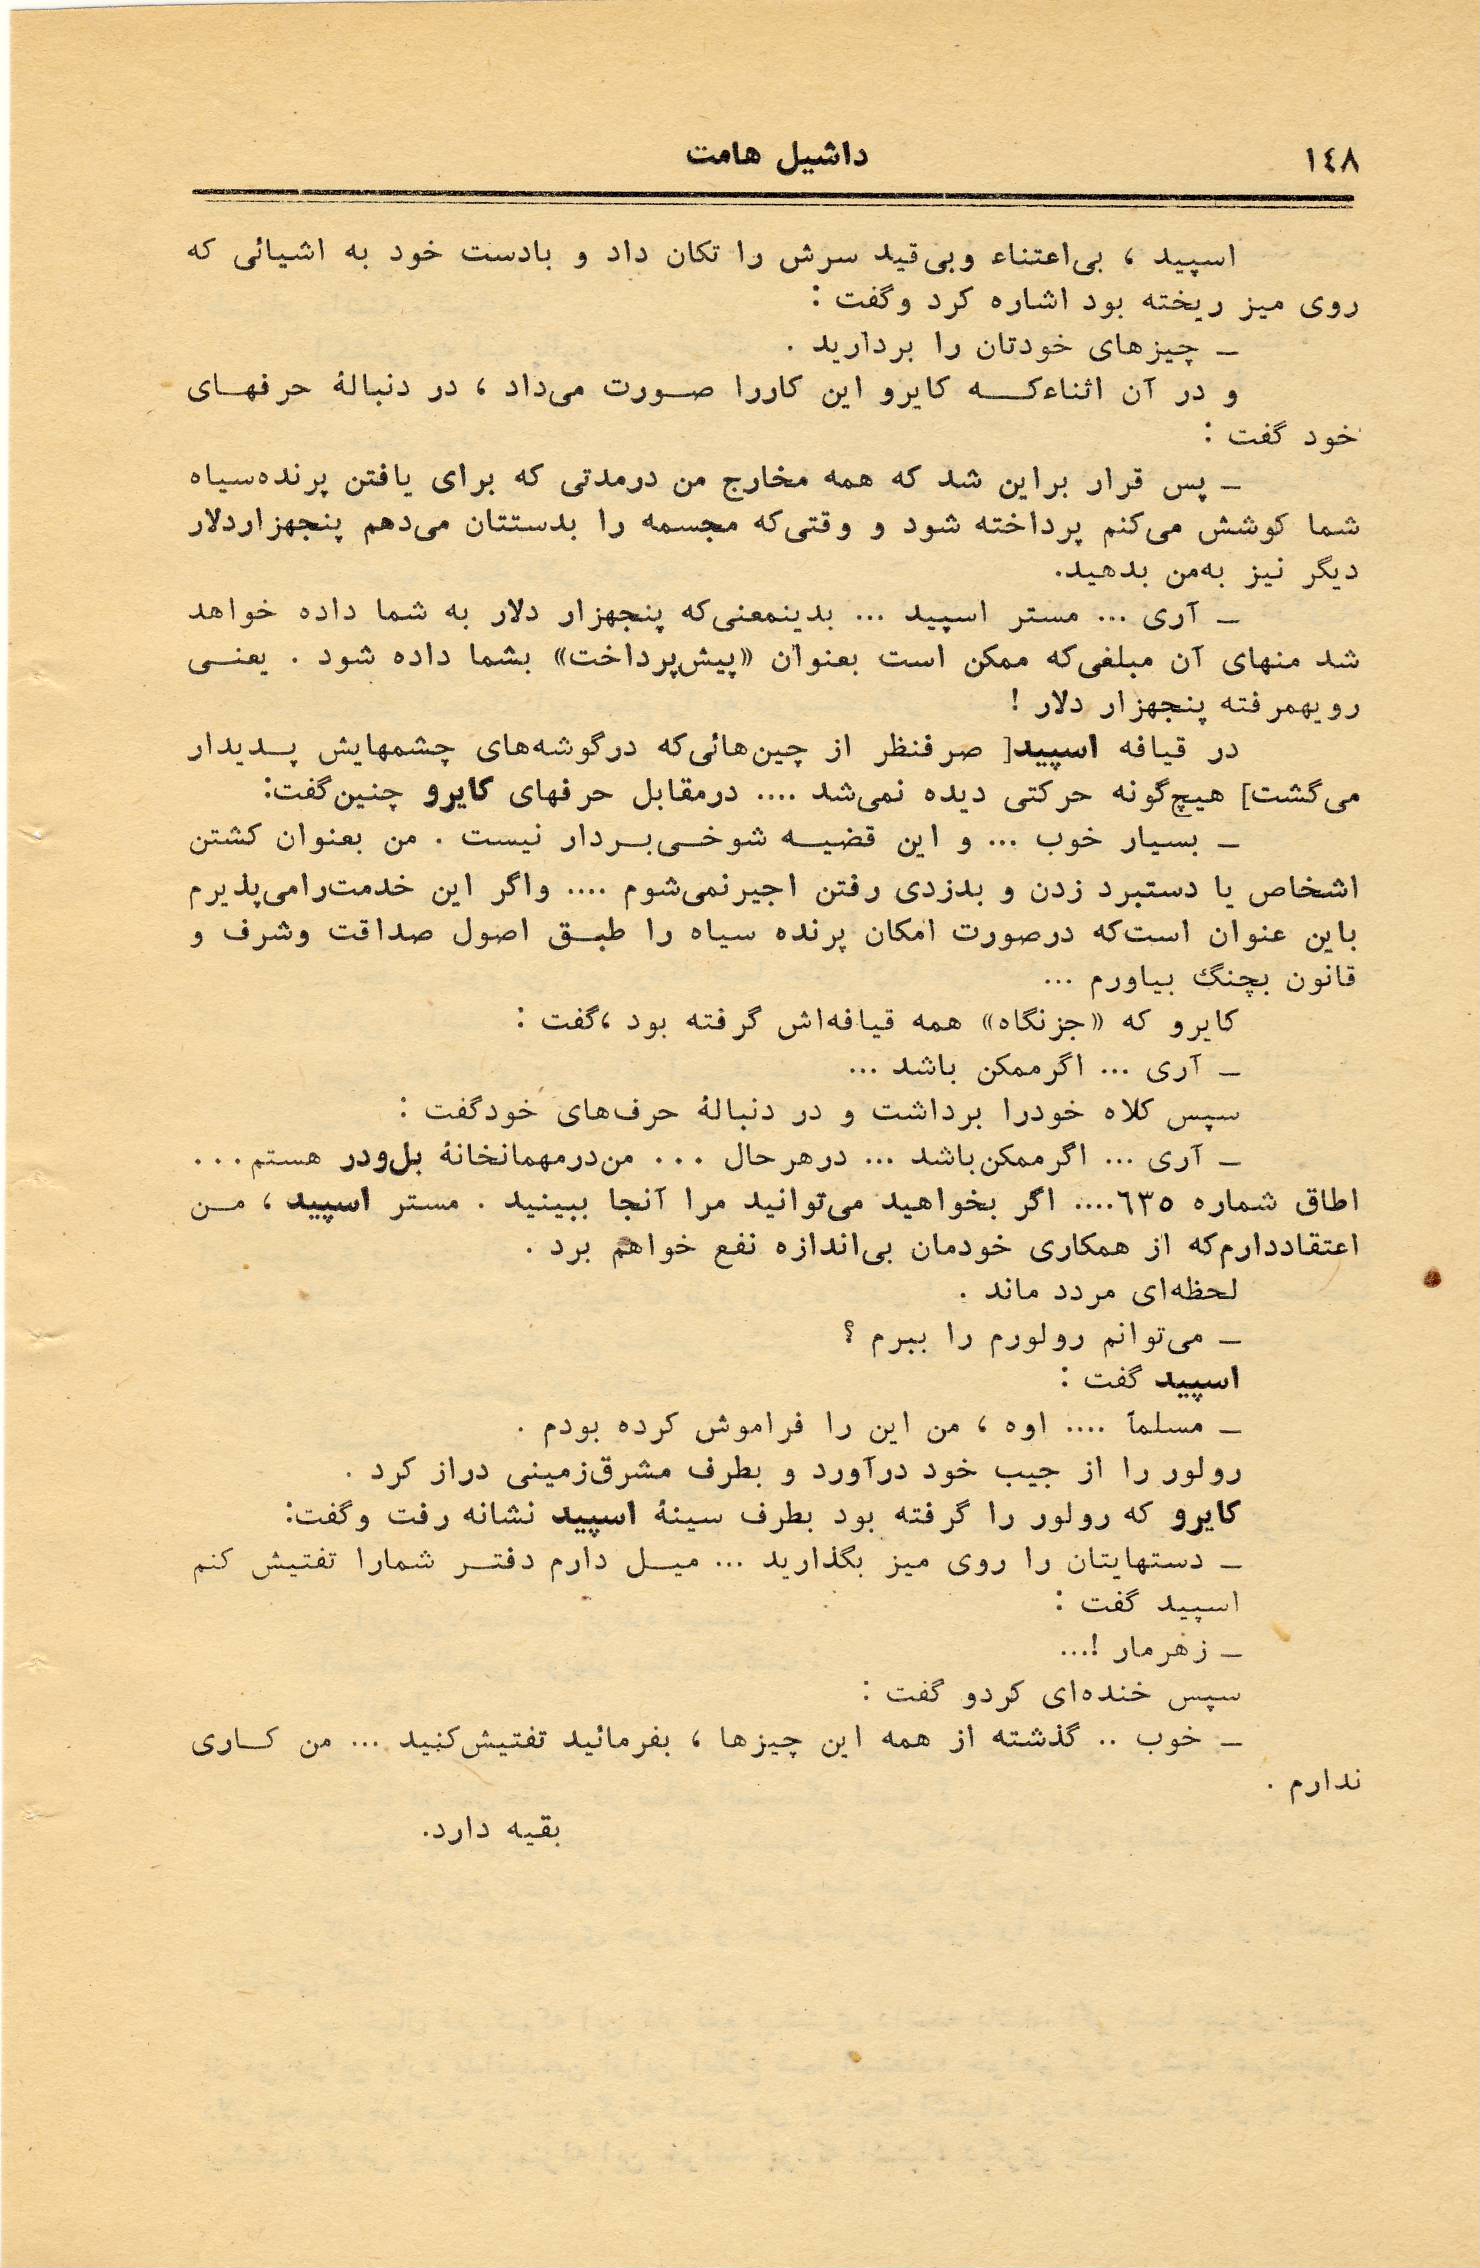 ١٤٨
داشیل هامت
اسپید ، بی‌اعتناء وبی‌قید سرش را تکان داد و بادست خود به اشیائی که
روی میز ریخته بود اشاره کرد وگفت :
ـ چیزهای خودتان را بردارید .
و در آن اثناءکه کایرو این کاررا صورت می‌داد ، در دنبالهٔ حرفهای
خود گفت :
ـ پس قرار براین شد که همه مخارج من درمدتی که برای یافتن پرنده‌سیاه
شما کوشش می‌کنم پرداخته شود و وقتی‌که مجسمه را بدستتان می‌دهم پنجهزاردلار
دیگر نیز به‌من بدهید.
ـ آری ... مستر اسپید ... بدینمعنی‌که پنجهزار دلار به شما داده خواهد
شد منهای آن مبلغی‌که ممکن است بعنوان «پیش‌پرداخت» بشما داده شود . یعنی
رویهمرفته پنجهزار دلار !
در قیافه اسپید[ صرفنظر از چین‌هائی‌که درگوشه‌های چشمهایش پدیدار
می‌گشت] هیچ‌گونه حرکتی دیده نمی‌شد .... درمقابل حرفهای کایرو چنین‌گفت:
ـ بسیار خوب ... و این قضیه شوخی‌بردار نیست . من بعنوان کشتن
اشخاص یا دستبرد زدن و بدزدی رفتن اجیرنمی‌شوم .... واگر این خدمت‌رامی‌پذیرم
باین عنوان است‌که درصورت امکان پرنده سیاه را طبق اصول صداقت وشرف و
قانون بچنگ بیاورم ...
کایرو که «جزنگاه» همه قیافه‌اش گرفته بود ،گفت :
ـ آری ... اگرممکن باشد ...
سپس کلاه خودرا برداشت و در دنبالهٔ حرف‌های خودگفت :
ـ آری ... اگرممکن‌باشد ... درهرحال ... من‌درمهمانخانهٔ بل‌ودر هستم...
اطاق شماره ٦٣٥.... اگر بخواهید می‌توانید مرا آنجا ببینید . مستر اسپید ، من
اعتقاددارم‌که از همکاری خودمان بی‌اندازه نفع خواهم برد .
لحظه‌ای مردد ماند .
ـ می‌توانم رولورم را ببرم ؟
اسپید گفت :
ـ مسلماً .... اوه ، من این را فراموش کرده بودم .
رولور را از جیب خود درآورد و بطرف مشرق‌زمینی دراز کرد .
کایرو که رولور را گرفته بود بطرف سینهٔ اسپید نشانه رفت وگفت:
ـ دستهایتان را روی میز بگذارید ... میل دارم دفتر شمارا تفتیش کنم
اسپید گفت :
ـ زهرمار !...
سپس خنده‌ای کردو گفت :
ـ خوب .. گذشته از همه این چیزها ، بفرمائید تفتیش‌کنید ... من کاری
ندارم .
بقیه دارد.